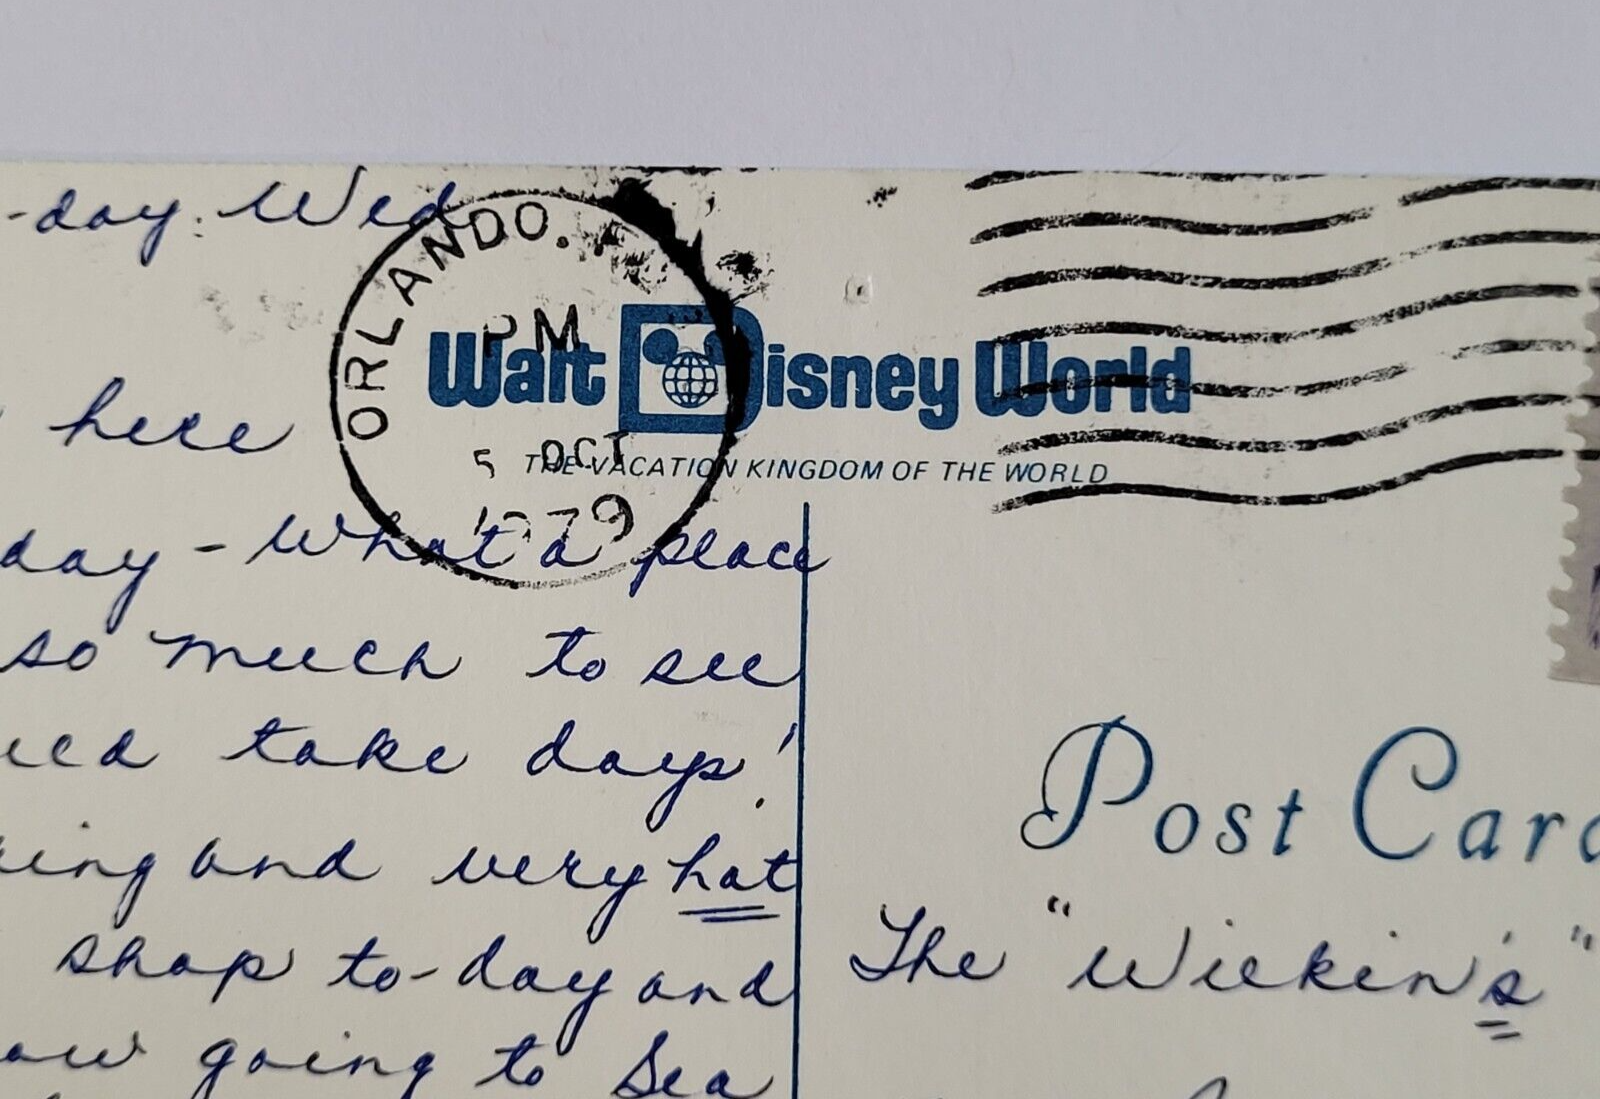 -day. Wed
ORLANDO.
PM
5 OCT
1979
Walt Disney World
THE VACATION KINGDOM OF THE WORLD
here
day - What a place
so much to see
take days!
and very hot
shop to-day and
going to Sea
Post Card
The "Wickin's"